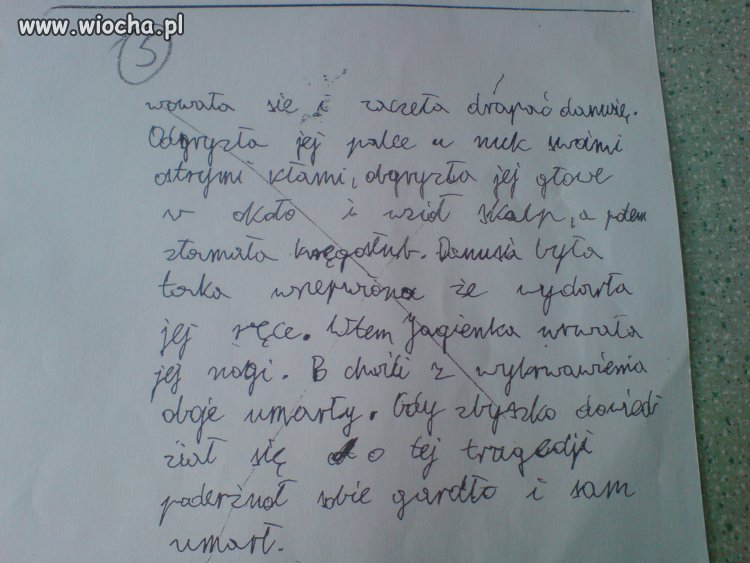 www.wiocha.pl
3
wowała sie i zaczeła drapać danusię.
Odgryzła jej palce u nuk swoimi
ostrymi kłami, obgryzła jej głowe
w około i wzioł skalp, a potem
złamała kręgosłub. Danusia była
taka że wydarła
jej ręce. Wtem Jagienka urwała
jej nogi. B chwili z wykrwawienia
oboje umarły. Gdy zbyszko dowiedz
ział się o tej tragedji
poderżnoł sobie gardło i sam
umarł.